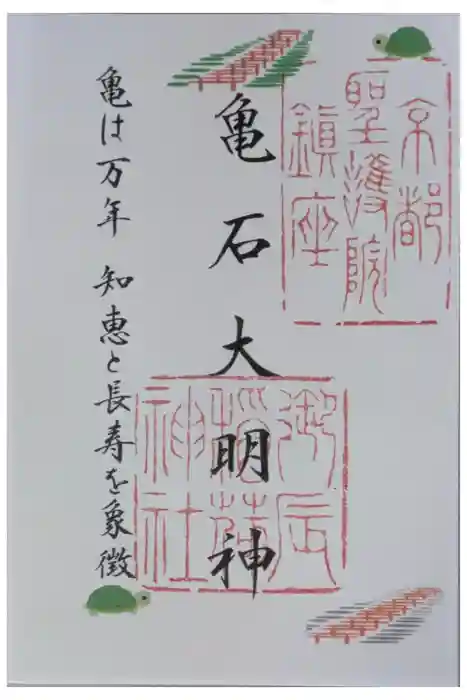 京都
聖護院
鎮座
亀石大明神
御辰
稲荷
神社
亀は万年 知恵と長寿を象徴